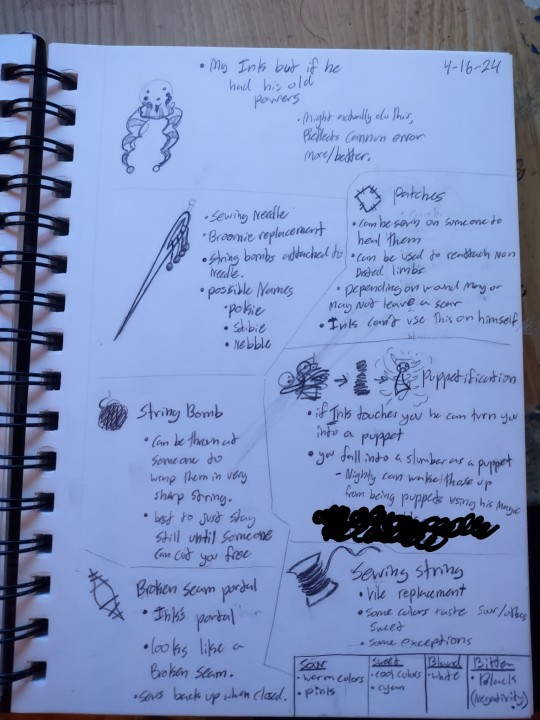 • My Inks but if he
had his old
powers
4-16-24
• Might actually do this,
Reflects Cannon error
more/better.
• Sewing Needle
• Broomie replacement
• String bombs attached to
needle.
• possible Names
• pokie
• Stibie
• Nebble
Patches
• can be sewn on someone to
heal them
• can be used to reattach non
Dusted limbs
• Depending on wound may or
may not leave a scar
• Inks can't use this on himself
Puppetification
• if Inks touches you he can turn you
into a puppet
• you fall into a slumber as a puppet
- Nighty can wake those up
from being puppets using his magic
String Bomb
• can be thrown at
someone to
wrap them in very
sharp string.
• best to just stay
still until someone
can cut you free
Broken seam portal
• Inks portal
• looks like a
Broken seam.
• Sews back up when closed.
Sewing String
• Vile replacement
• Some colors taste Sour/others
Sweet
• Some exceptions
Sour
• warm colors
• pinks
Sweet
• cool colors
• cyan
Bland
• white
Bitter
• Blacks
(Negativity)